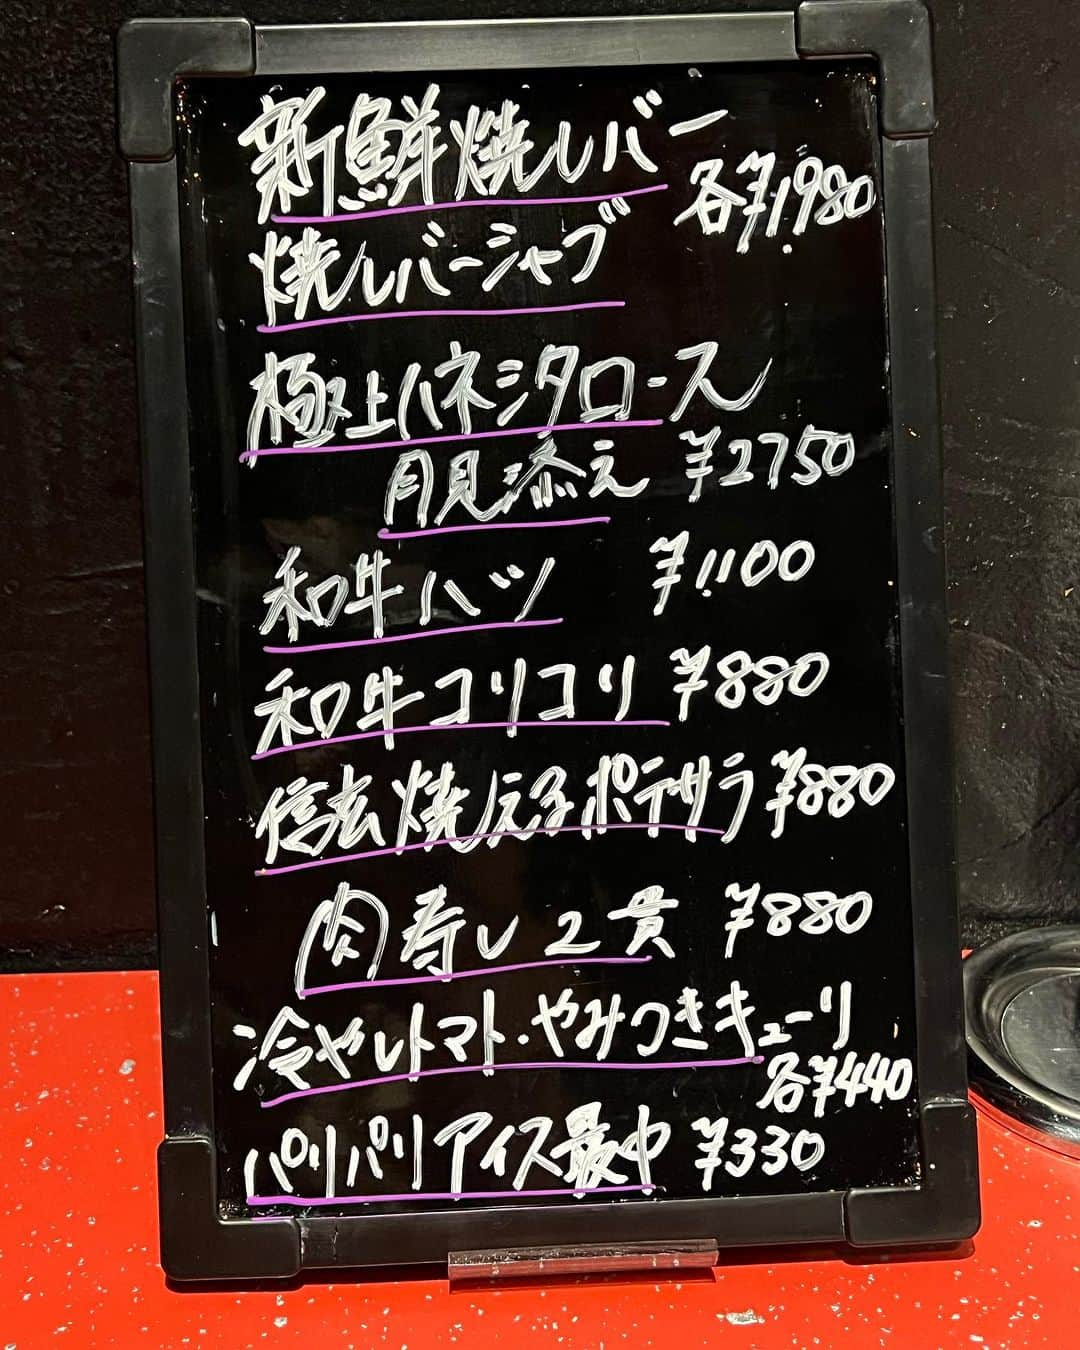 新鮮焼レバー
各¥1,980
焼レバーシャブ
極上ハネシタロース
月見添え ¥2750
和牛ハツ ¥1,100
和牛コリコリ ¥880
信玄焼ポテサラ ¥880
肉寿し2貫 ¥880
冷やしトマト・やみつきキューリ
各¥440
パリパリアイス最中 ¥330